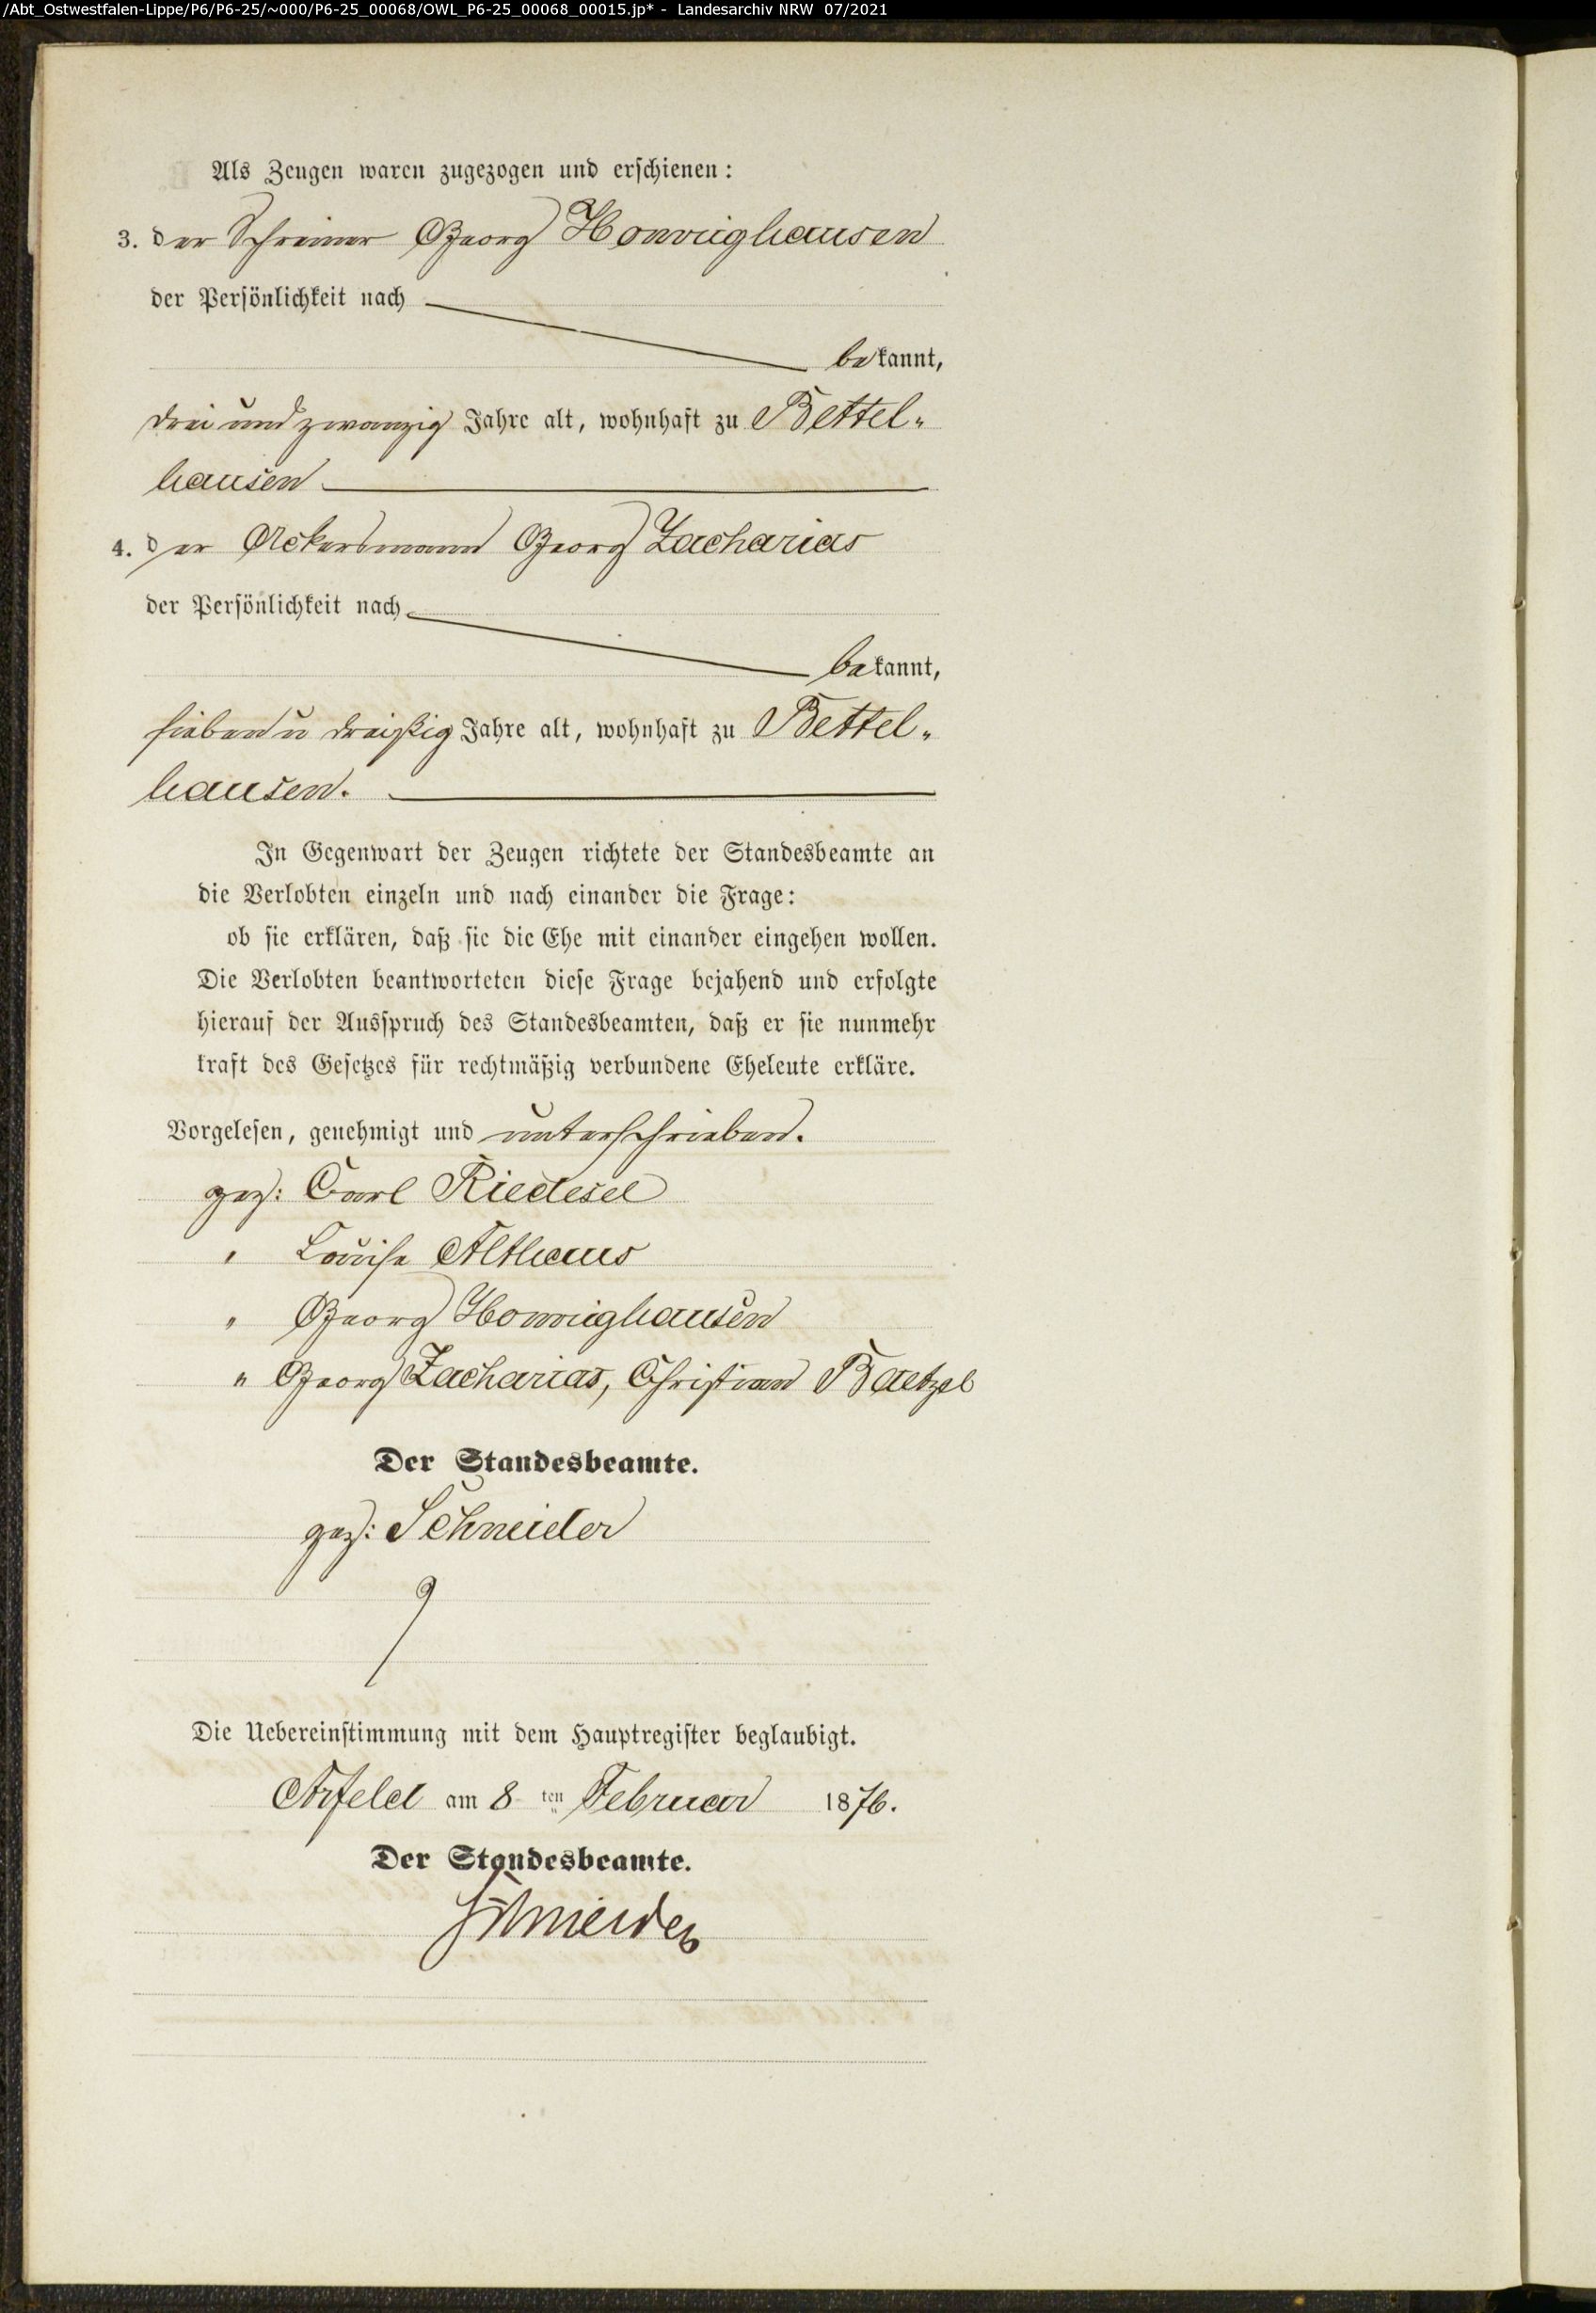 /Abt_Ostwestfalen-Lippe/P6/P6-25/~000/P6-25_00068/OWL_P6-25_00068_00015.jp* - Landesarchiv NRW 07/2021
Als Zeugen waren zugezogen und erschienen:
3. der Schreiner Georg Honrighausen
der Persönlichkeit nach
bekannt,
drei und zwanzig Jahre alt, wohnhaft zu Bettel„
hausen
4. der Ackersmann Georg Zacharias
der Persönlichkeit nach
bekannt,
sieben u dreißig Jahre alt, wohnhaft zu Bettel„
hausen.
In Gegenwart der Zeugen richtete der Standesbeamte an
die Verlobten einzeln und nach einander die Frage:
ob sie erklären, daß sie die Ehe mit einander eingehen wollen.
Die Verlobten beantworteten diese Frage bejahend und erfolgte
hierauf der Ausspruch des Standesbeamten, daß er sie nunmehr
kraft des Gesetzes für rechtmäßig verbundene Eheleute erkläre.
Vorgelesen, genehmigt und unterschrieben.
gez: Carl Riedesel
" Louise Althaus
" Georg Honrighausen
" Georg Zacharias, Christian Baetzel
Der Standesbeamte.
gez: Schneider
Die Uebereinstimmung mit dem Hauptregister beglaubigt.
Arfeld am 8 ten Februar 1876.
Der Standesbeamte.
Schneider